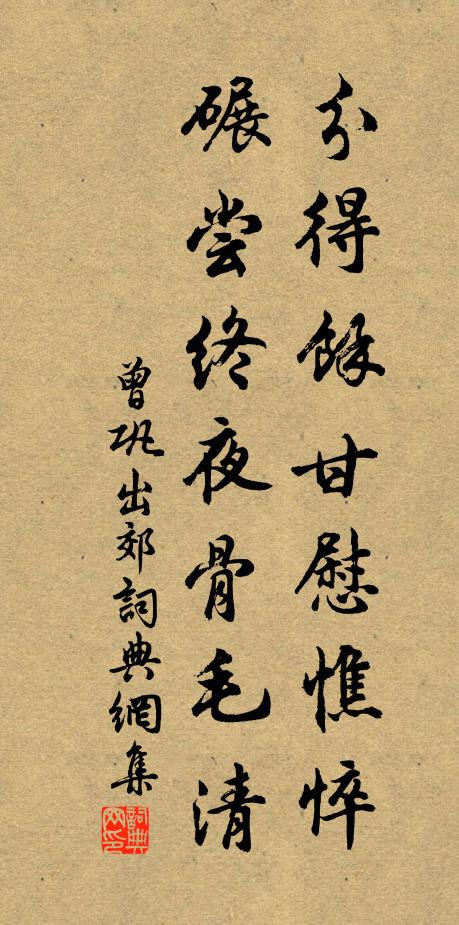 分得餘甘慰憔悴
碾尝終夜骨毛清
曾巩出郊詞典網集
詞典網印